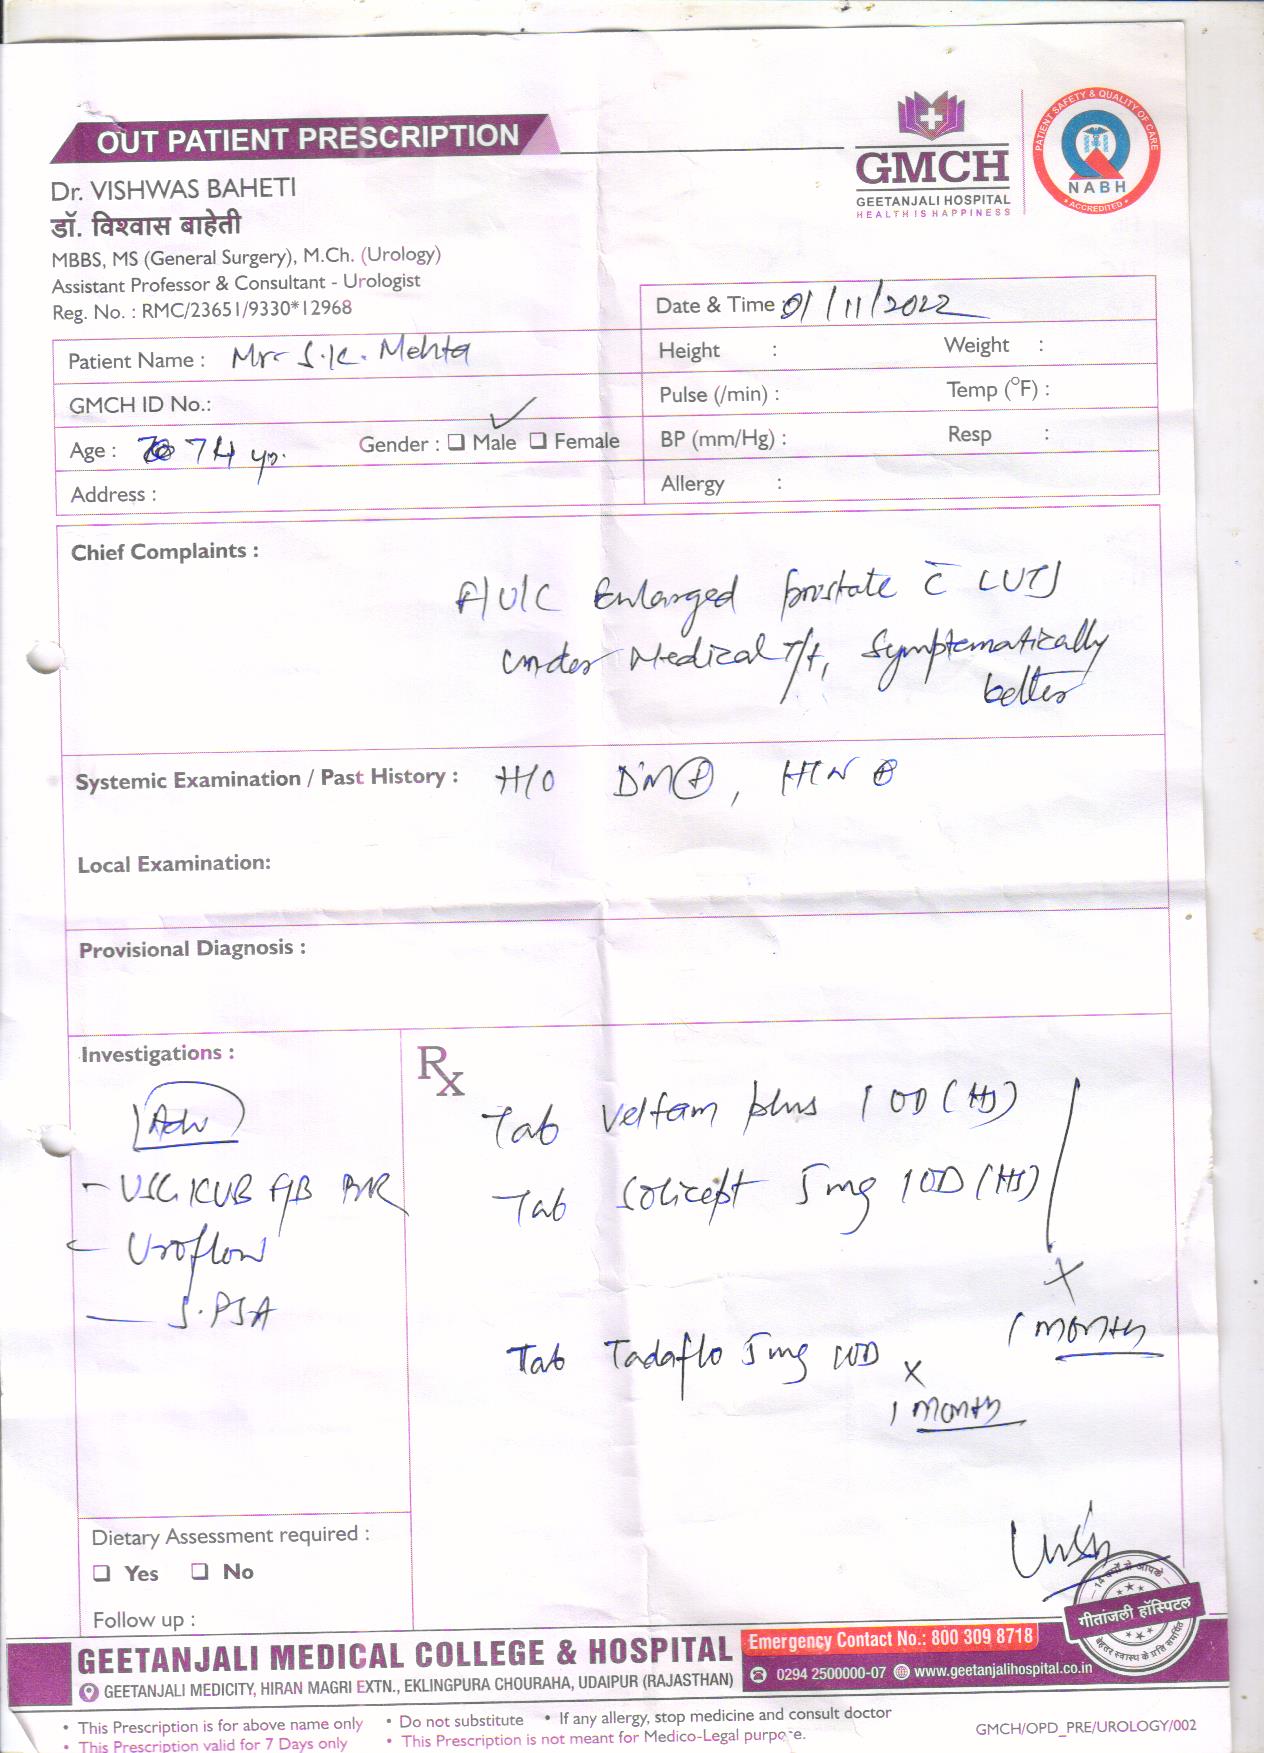 OUT PATIENT PRESCRIPTION
GMCH
GEETANJALI HOSPITAL
HEALTH IS HAPPINESS
PATIENT SAFETY & QUALITY OF CARE
NABH
ACCREDITED
Dr. VISHWAS BAHETI
डॉ. विश्वास बाहेती
MBBS, MS (General Surgery), M.Ch. (Urology)
Assistant Professor & Consultant - Urologist
Reg. No. : RMC/23651/9330*12968
Date & Time : 01/11/2022
Patient Name : Mr S.K. Mehta
Height : Weight :
GMCH ID No.:
Pulse (/min) : Temp (°F) :
Age : 74 yr. Gender : ❑ Male ✓ ❑ Female
BP (mm/Hg) : Resp :
Address :
Allergy :
Chief Complaints :
F/U/C Enlarged prostate c̄ LUTS
under Medical T/t, Symptematically
better
Systemic Examination / Past History : H/O DM⊕, HTN ⊕
Local Examination:
Provisional Diagnosis :
Investigations :
Adv
- USG KUB F/B PVR
- Uroflow
- S.PSA
Rx
Tab Veltam plus 1 OD (HS)
Tab Solicept 5mg 1 OD (HS)
x
1 month
Tab Tadaflo 5mg 1OD x
1 month
Dietary Assessment required :
❑ Yes ❑ No
Follow up :
गीतांजली हॉस्पिटल
GEETANJALI MEDICAL COLLEGE & HOSPITAL
GEETANJALI MEDICITY, HIRAN MAGRI EXTN., EKLINGPURA CHOURAHA, UDAIPUR (RAJASTHAN)
Emergency Contact No.: 800 309 8718
0294 2500000-07 www.geetanjalihospital.co.in
• This Prescription is for above name only • Do not substitute • If any allergy, stop medicine and consult doctor
• This Prescription valid for 7 Days only • This Prescription is not meant for Medico-Legal purpose.
GMCH/OPD_PRE/UROLOGY/002